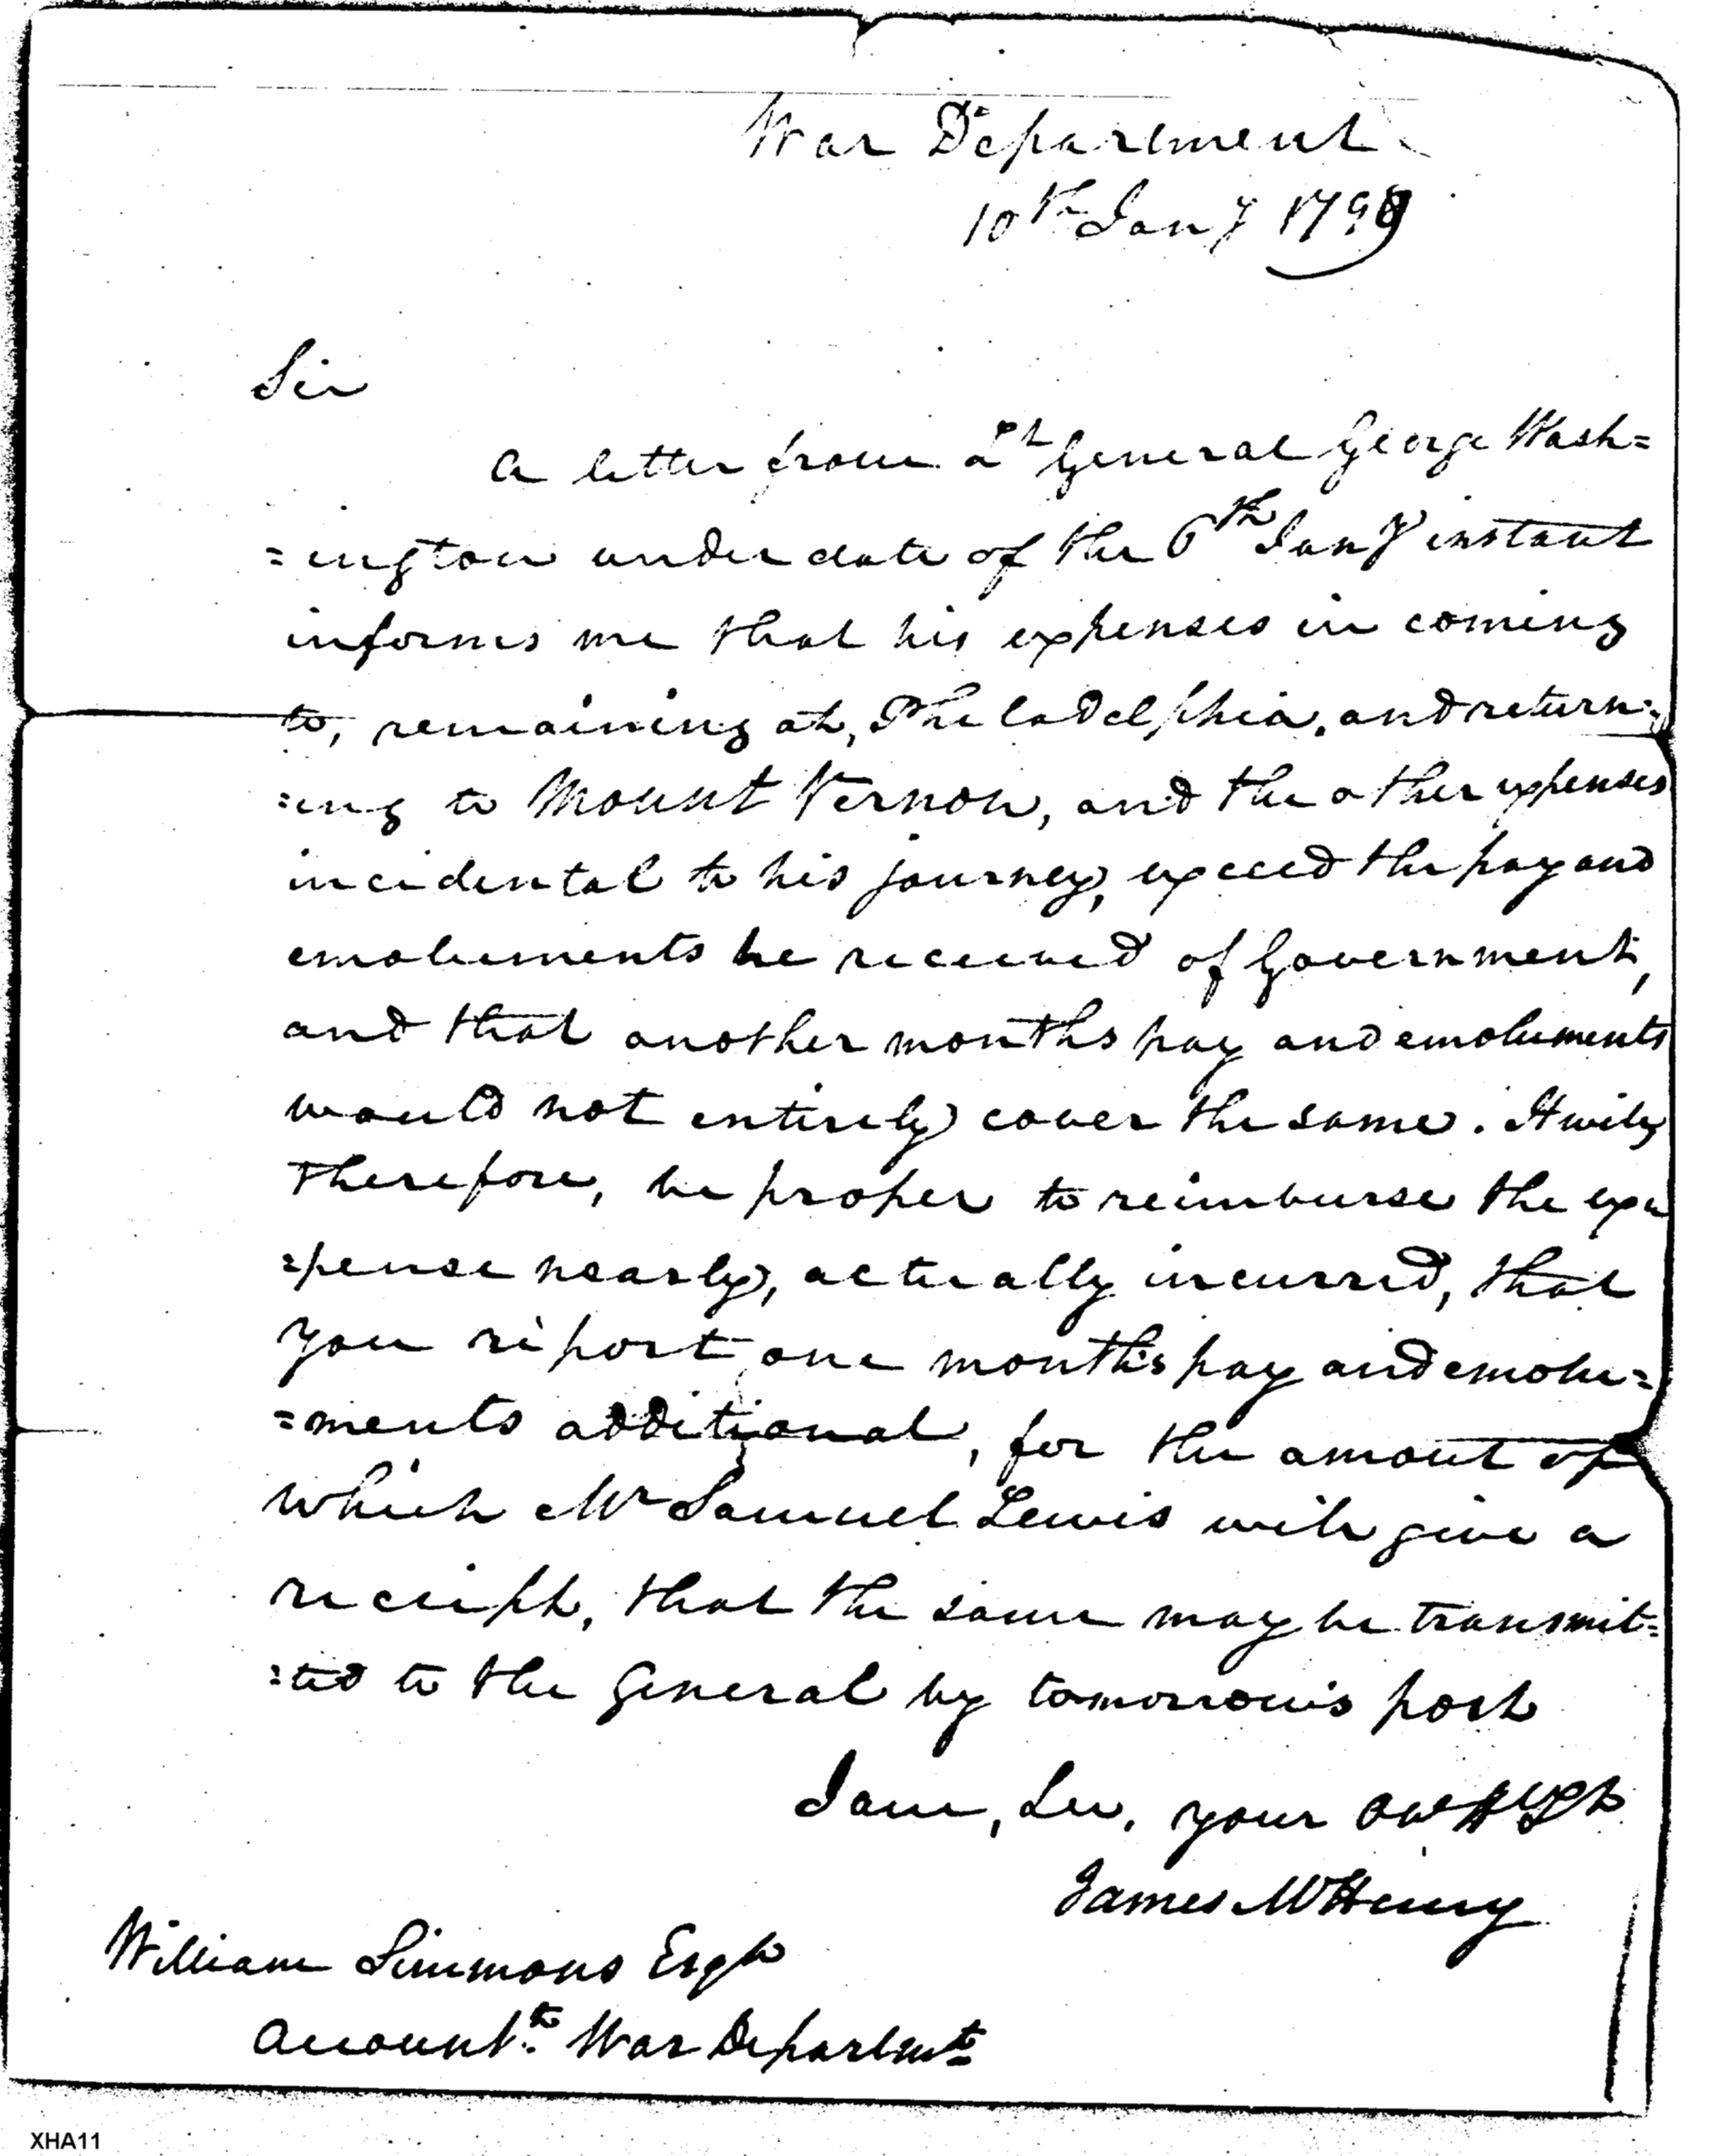 War Department
10th Jany 1799
Sir
A letter from Lt General George Wash=
=ington under date of the 6th Jany instant
informs me that his expenses in coming
to, remaining at, Philadelphia, and return=
=ing to Mount Vernon, and the other expenses
incidental to his journey, exceed the pay and
emoluments he received of Government,
and that another months pay and emoluments
would not entirely cover the same. It will
therefore, be proper to reimburse the ex=
=pense nearly, actually incurred, that
you report one month's pay and emolu=
=ments additional, for the amout of
which Mr Samuel Lewis will give a
receipt, that the same may be transmit=
=ted to the General by tomorrow's post
I am, Sir, your
James McHenry
William Simmons Esqr
Accountt War Departmt
XHA11